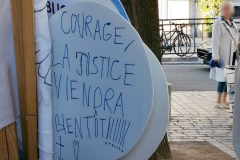 BLIC
COURAGE,
LA JUSTICE
VIENDRA
BIENTÔT!!!!!!